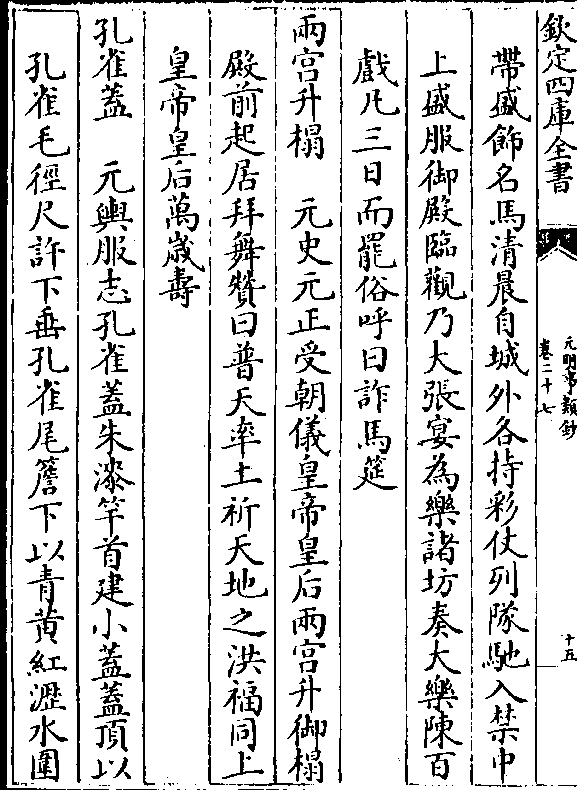 欽定四庫全書
元明事類鈔
卷二十七
十五
帶盛飾名馬清晨自城外各持彩仗列隊馳入禁中
上盛服御殿臨觀乃大張宴為樂諸坊奏大樂陳百
戲凡三日而罷俗呼曰詐馬筵
兩宮升榻　元史元正受朝儀皇帝皇后兩宮升御榻
殿前起居拜舞贊曰普天率土祈天地之洪福同上
皇帝皇后萬歲壽
孔雀蓋　元輿服志孔雀蓋朱漆竿首建小蓋蓋頂以
孔雀毛徑尺許下垂孔雀尾簷下以青黃紅瀝水圍